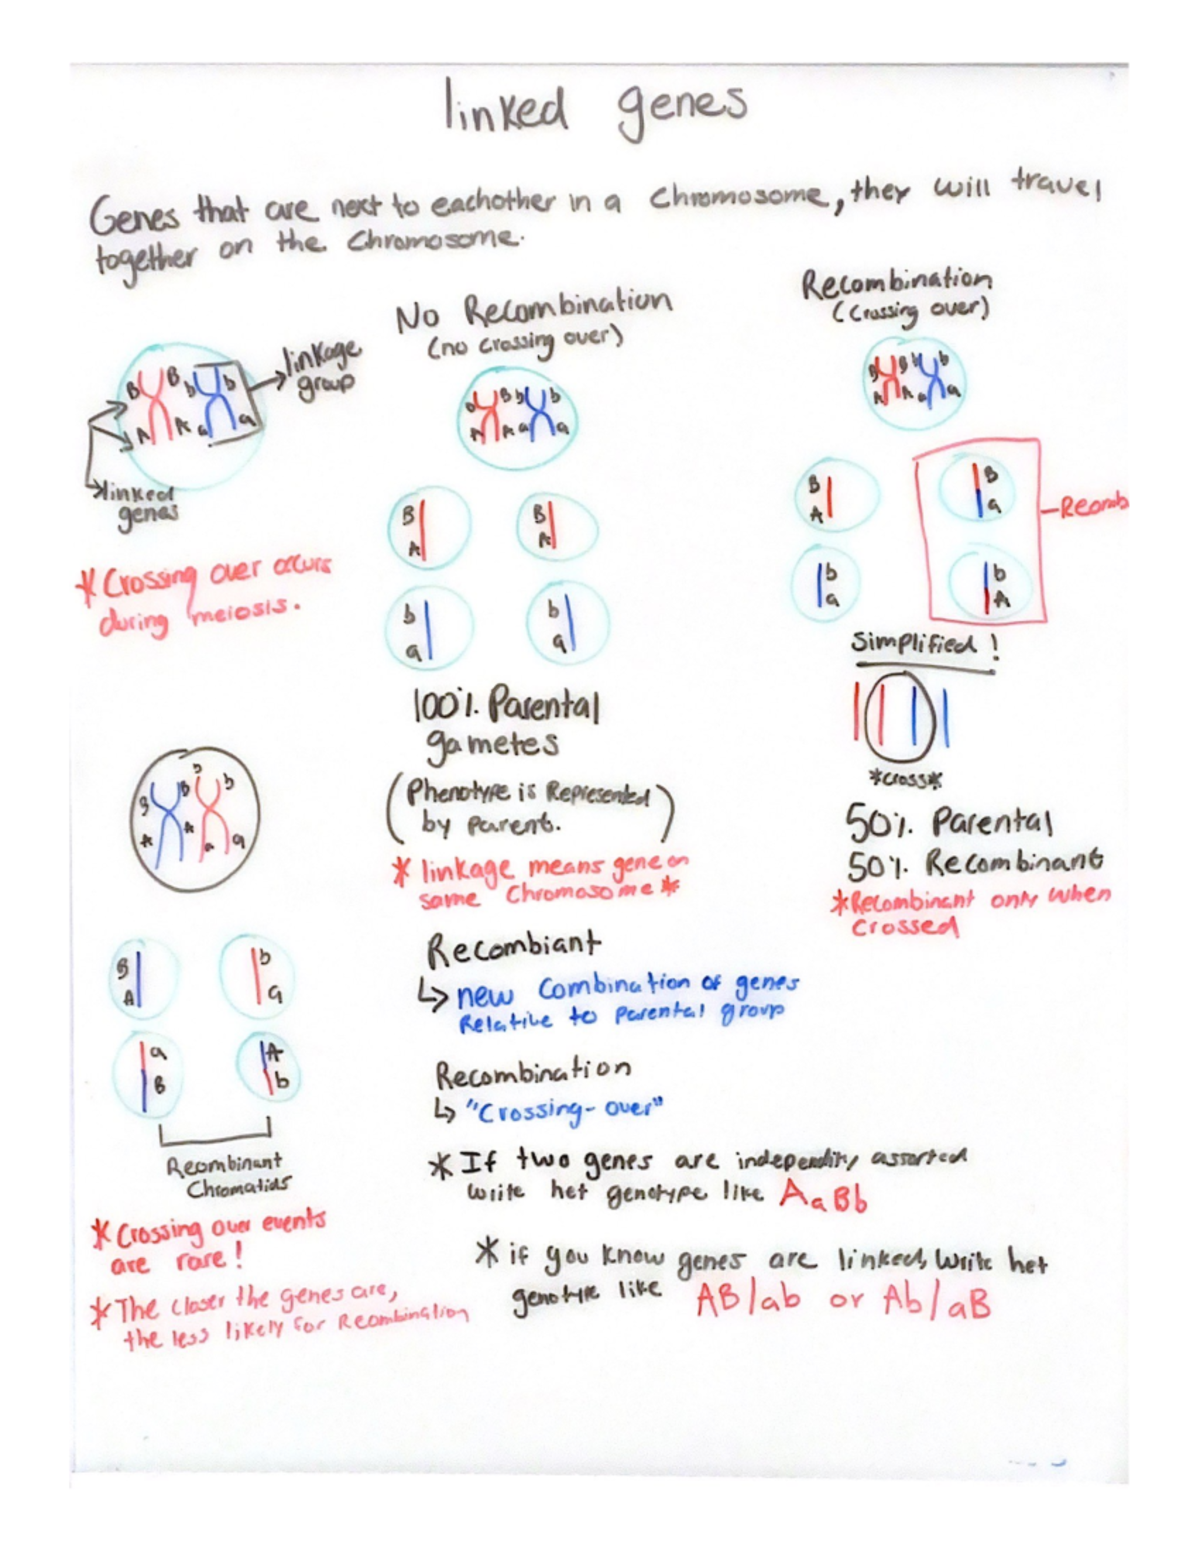 linked genes
Genes that are next to eachother in a Chromosome, they will travel
together on the Chromosome.
No Recombination
(no crossing over)
Recombination
(Crossing over)
linkage
group
B B b b
A A a a
linked
genes
B B b b
A A a a
B B b b
A A a a
B
A
B
A
b
a
b
a
B
A
B
a
b
a
b
A
Recomb
*Crossing over occurs
during meiosis.
100% Parental
gametes
(Phenotype is Represented)
by parent.
* linkage means gene on
same Chromosome *
Simplified!
*cross*
50% Parental
50% Recombinant
*Recombinant only when
crossed
B B b b
A A a a
B
A
b
a
a
B
A
b
Recombinant
Chromatids
*Crossing over events
are rare!
*The closer the genes are,
the less likely for Recombination
Recombiant
↳ new combination of genes
Relative to parental group
Recombination
↳ "Crossing-over"
*If two genes are assorted
write het genotype like AaBb
* if you know genes are linked, write het
genotype like AB/ab or Ab/aB